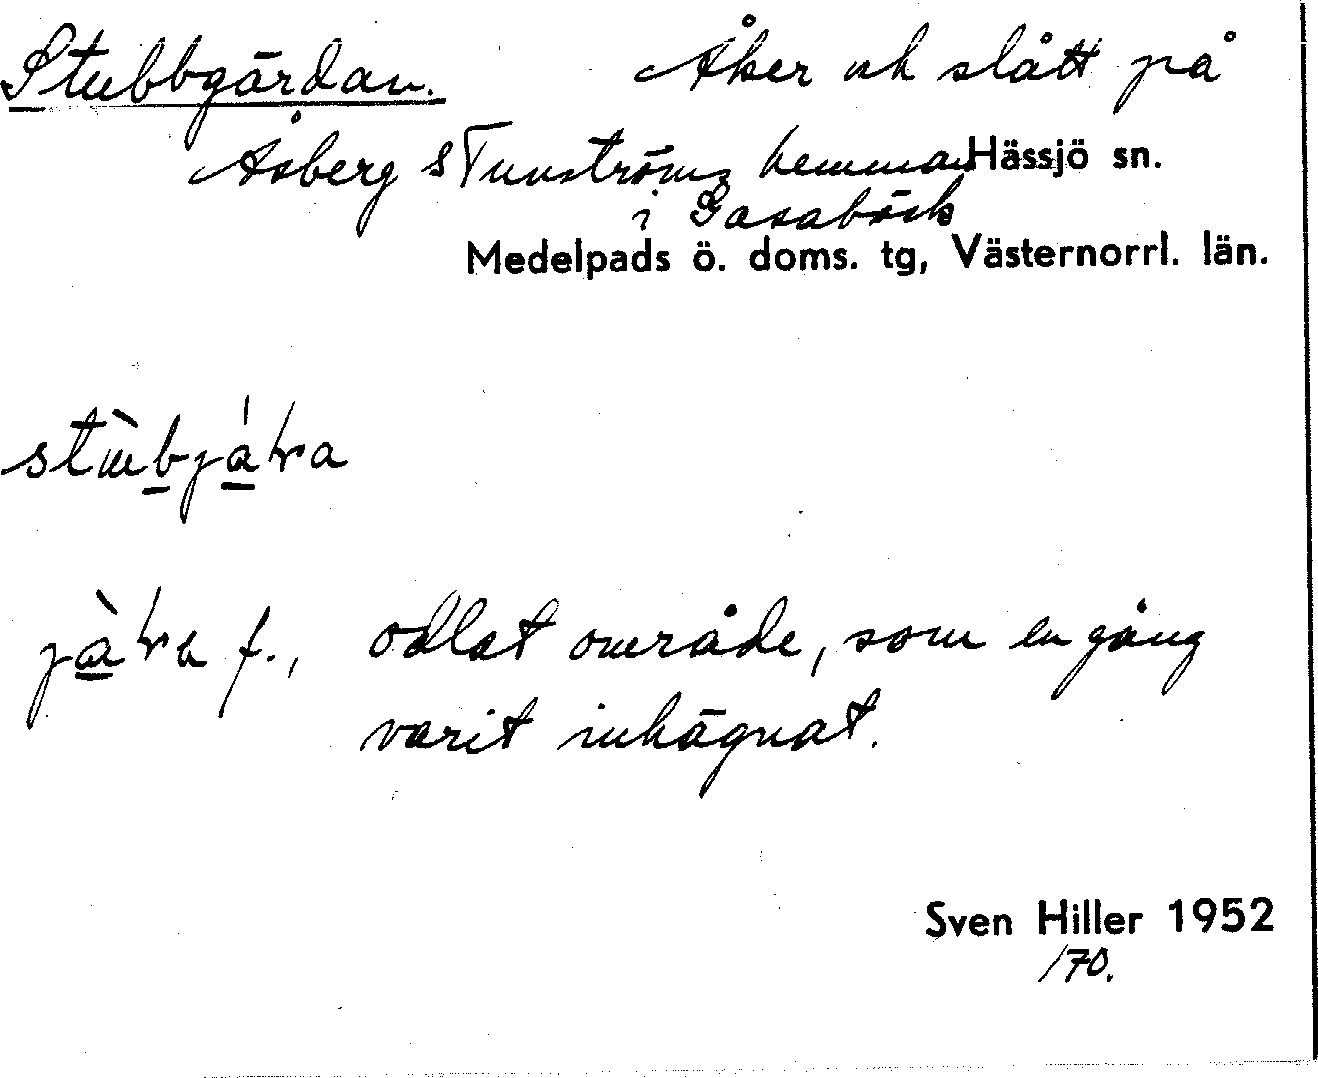 Stubbgärdan. Åker och slått på
Åsberg & Tunströms hemman Hässjö sn.
i Gasabäck
Medelpads ö. doms. tg, Västernorrl. län.
f., odlat område, som en gång
varit inhägnat.
Sven Hiller 1952
/70.